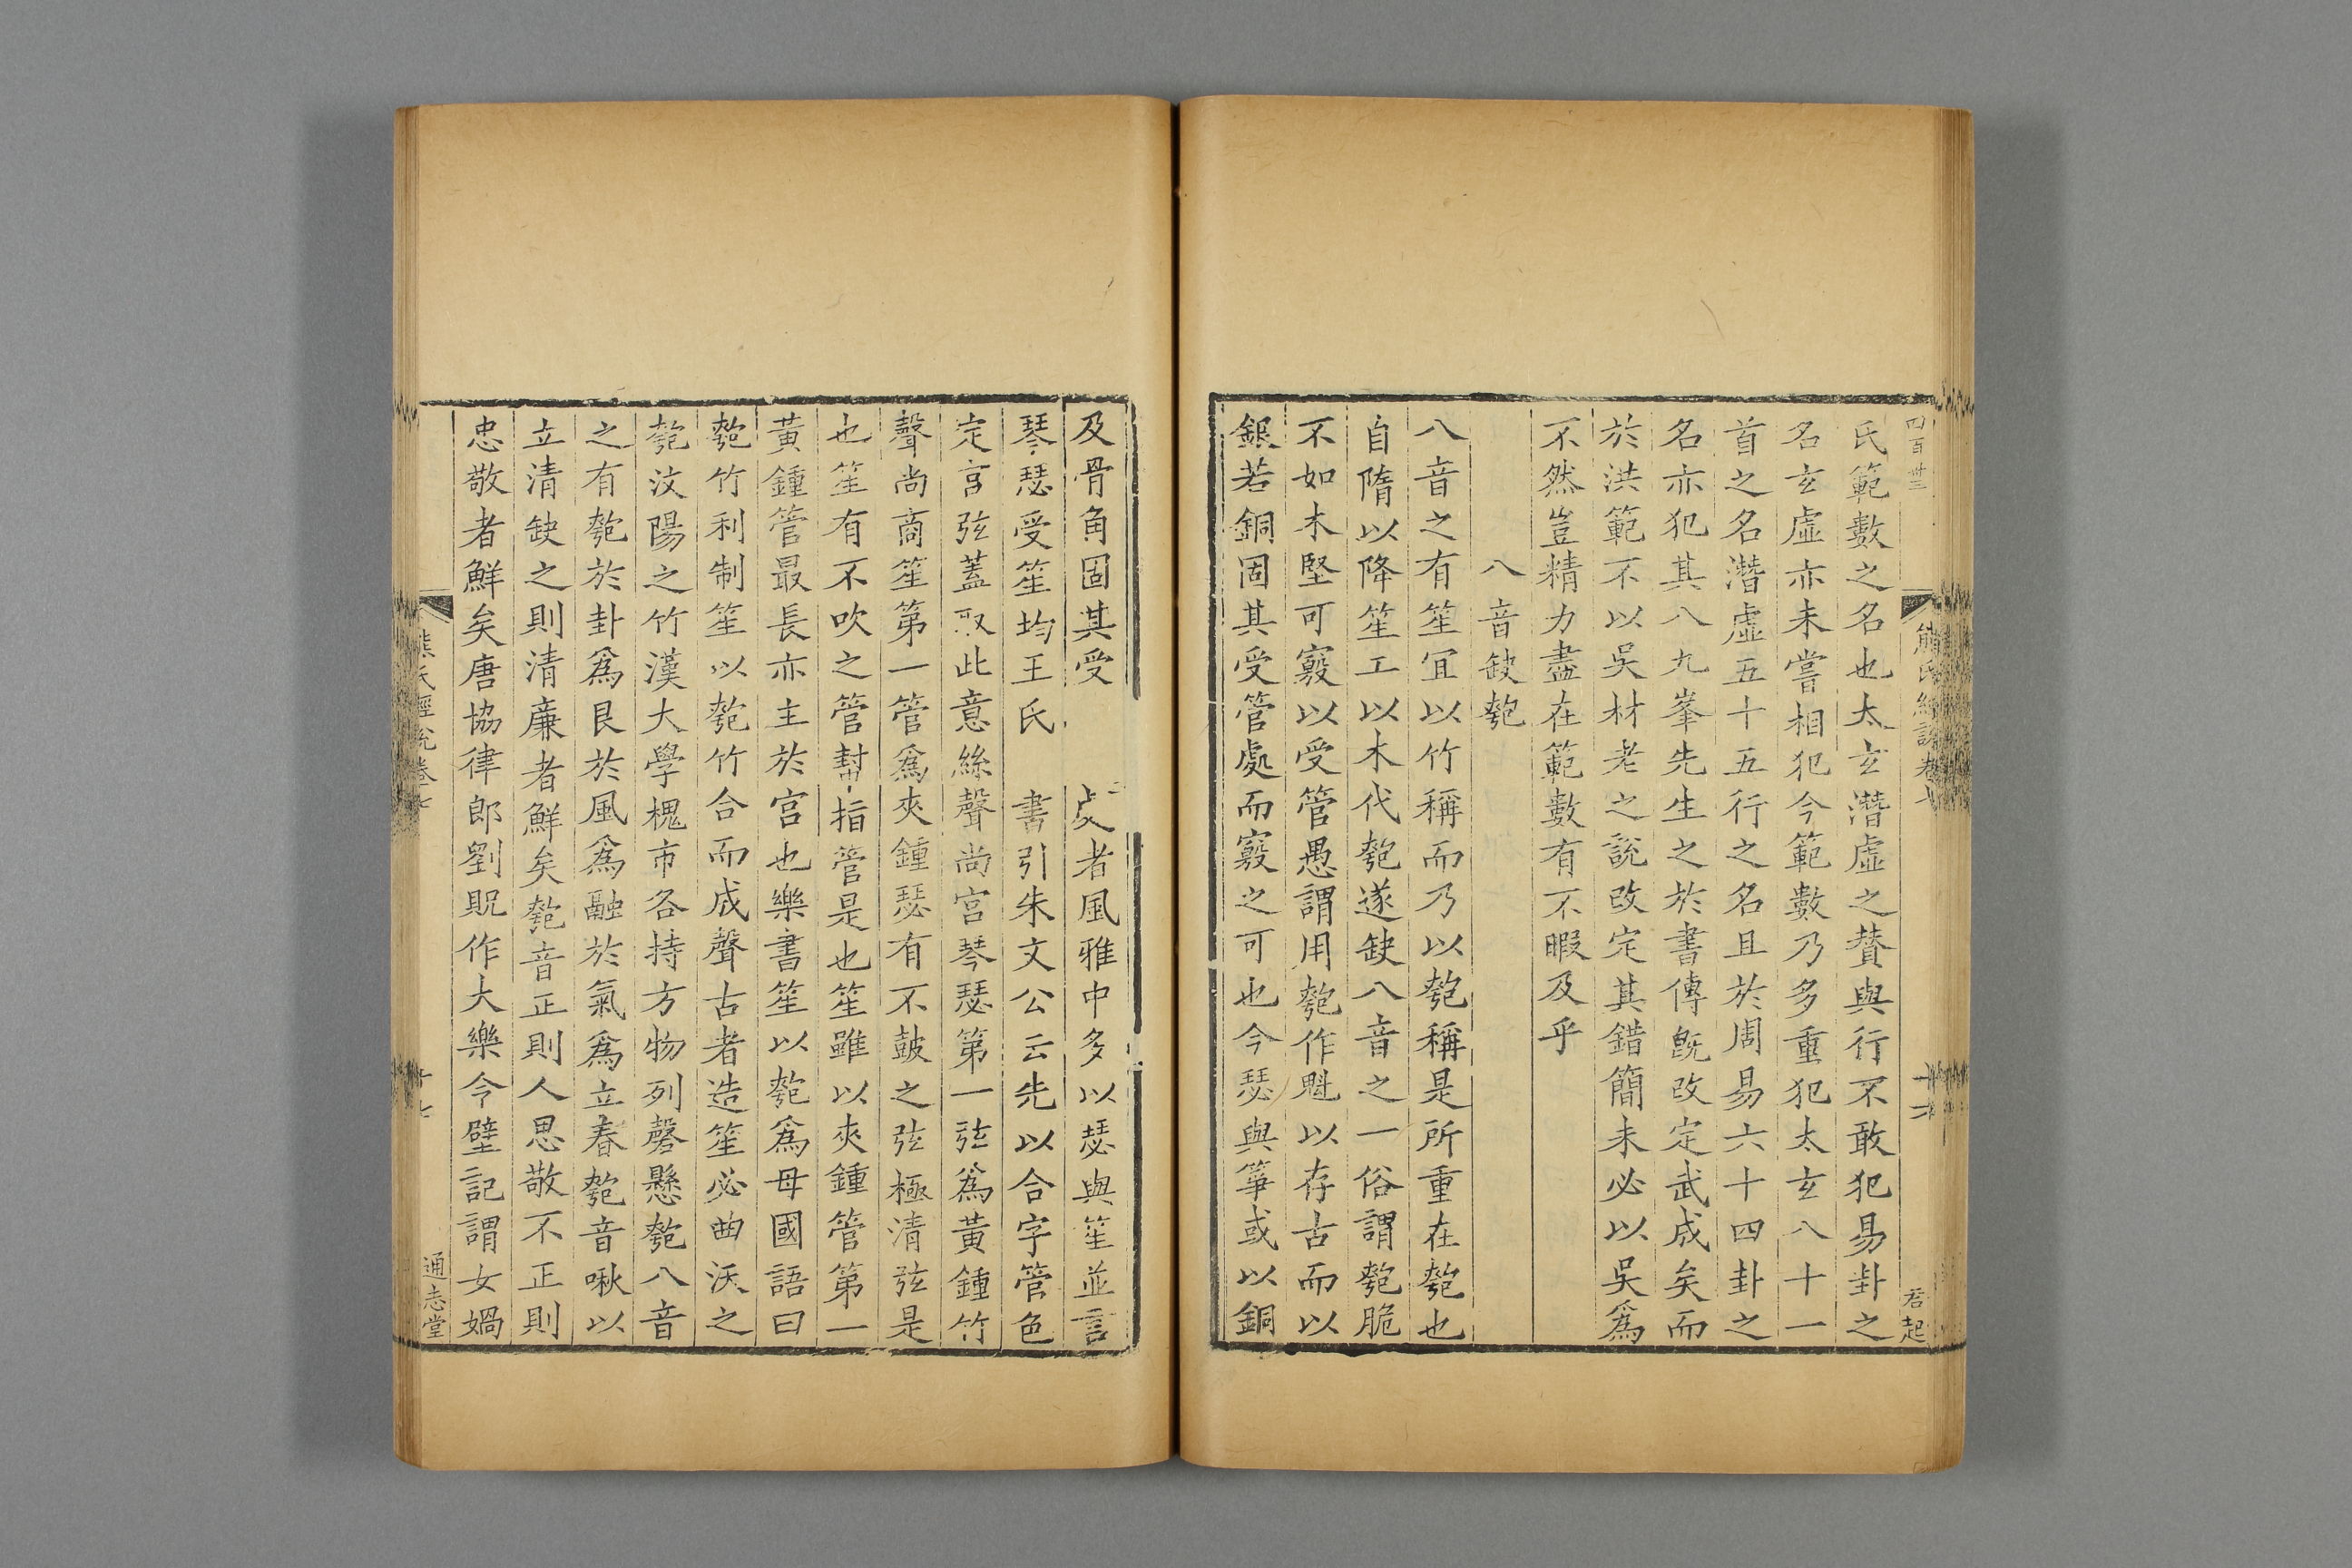 四百卅三
氏範數之名也太玄潛虛之贊與行不敢犯易卦之
名玄虛亦未嘗相犯今範數乃多重犯太玄八十一
首之名潛虛五十五行之名且於周易六十四卦之
名亦犯其八九峯先生之於書傳旣改定武成矣而
於洪範不以吳材老之說改定其錯簡未必以吳爲
不然豈精力盡在範數有不暇及乎
八音缺匏
八音之有笙宜以竹稱而乃以匏稱是所重在匏也
自隋以降笙工以木代匏遂缺八音之一俗謂匏脆
不如木堅可竅以受管愚謂用匏作魁以存古而以
銀若銅固其受管處而竅之可也今瑟與箏或以銅
熊氏經說卷七
十六
君起
及骨角固其受處者風雅中多以瑟與笙並言
琴瑟受笙均王氏書引朱文公云先以合字管色
定宮弦蓋取此意絲聲尚宮琴瑟第一弦爲黃鍾竹
聲尚商笙第一管爲夾鍾瑟有不鼓之弦極清弦是
也笙有不吹之管對指管是也笙雖以夾鍾管第一
黃鍾管最長亦主於宮也樂書笙以匏爲母國語曰
匏竹利制笙以匏竹合而成聲古者造笙必曲沃之
匏汶陽之竹漢大學槐市各持方物列磬懸匏八音
之有匏於卦爲艮於風爲融於氣爲立春匏音啾以
立清缺之則清廉者鮮矣匏音正則人思敬不正則
忠敬者鮮矣唐協律郎劉貺作大樂令壁記謂女媧
熊氏經說卷七
十七
通志堂